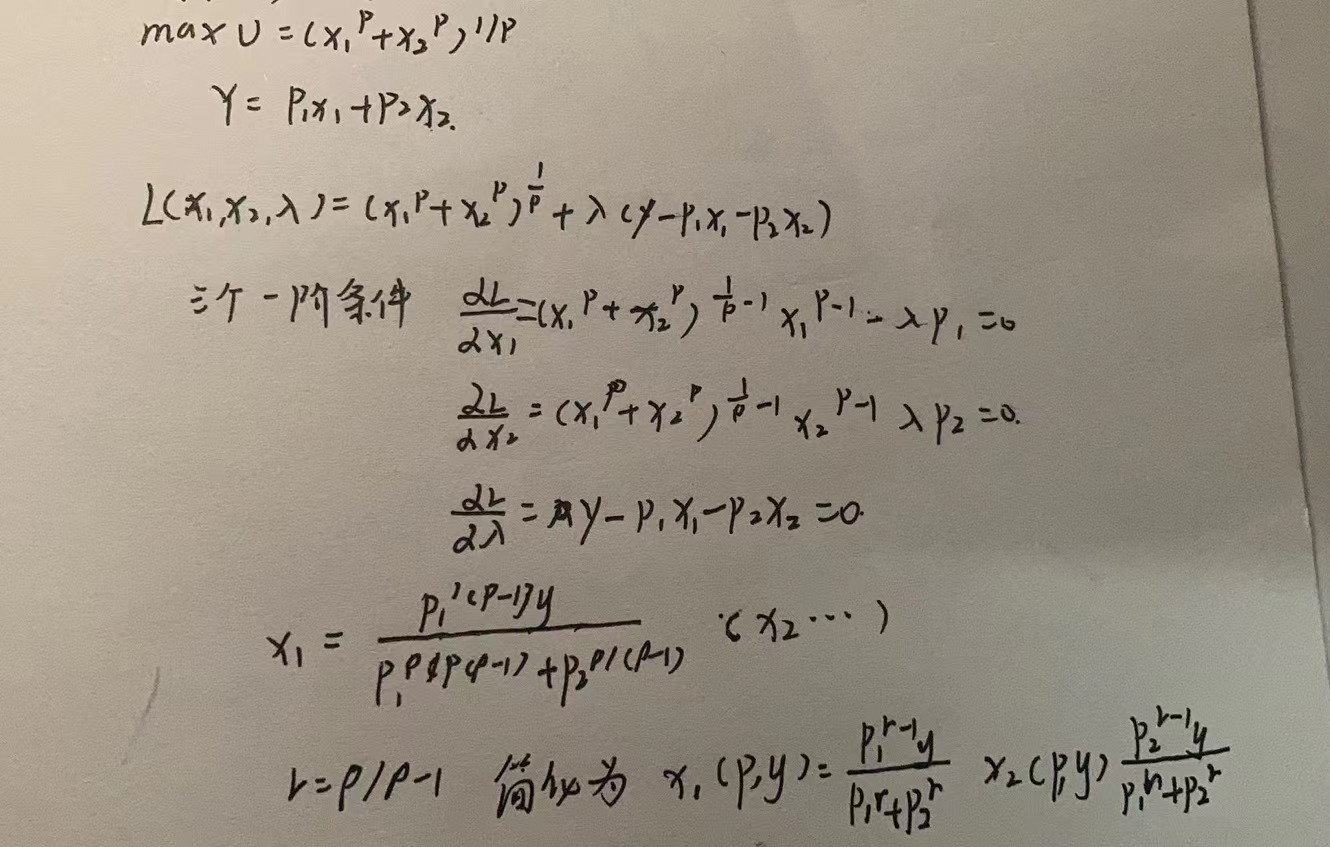 max U = (x₁ᵖ + x₂ᵖ)^1/p
Y = P₁x₁ + P₂x₂.
L(x₁, x₂, λ) = (x₁ᵖ + x₂ᵖ)^(1/p) + λ(y - p₁x₁ - p₂x₂)
三个一阶条件 ∂L/∂x₁ = (x₁ᵖ + x₂ᵖ)^(1/p - 1) x₁^(p-1) - λp₁ = 0
∂L/∂x₂ = (x₁ᵖ + x₂ᵖ)^(1/p - 1) x₂^(p-1) λp₂ = 0.
∂L/∂λ = y - p₁x₁ - p₂x₂ = 0.
x₁ = p₁^(1(p-1)) y / (p₁^(p/(p-1)) + p₂^(p/(p-1))) (x₂ ···)
r = p/p-1 简化为 x₁(p,y) = p₁^(r-1) y / (p₁^r + p₂^r) x₂(p,y) p₂^(r-1) y / (p₁^r + p₂^r)